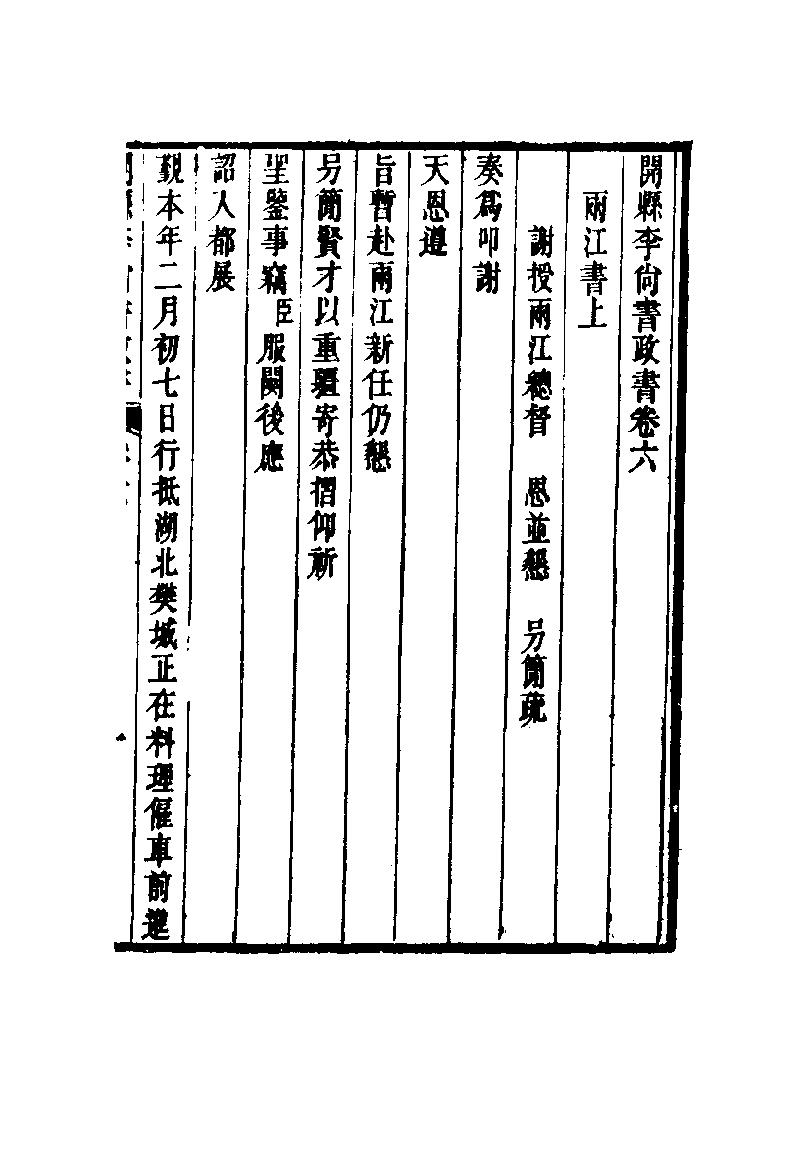 開縣李尙書政書卷六
兩江書上
謝授兩江總督　恩並懇　另簡疏
奏爲叩謝
天恩遵
旨暫赴兩江新任仍懇
另簡賢才以重疆寄恭摺仰祈
聖鑒事竊臣服闋後應
詔入都展
覲本年二月初七日行抵湖北樊城正在料理僱車前進